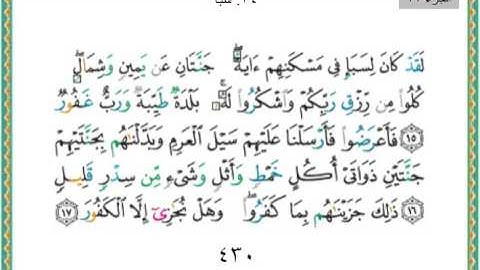 ٣٤. سبأ
لَقَدْ كَانَ لِسَبَإٍ فِى مَسْكَنِهِمْ ءَايَةٌ ۖ جَنَّتَانِ عَن يَمِينٍ وَشِمَالٍ ۖ
كُلُوا۟ مِن رِّزْقِ رَبِّكُمْ وَٱشْكُرُوا۟ لَهُۥ ۚ بَلْدَةٌ طَيِّبَةٌ وَرَبٌّ غَفُورٌ
١٥ فَأَعْرَضُوا۟ فَأَرْسَلْنَا عَلَيْهِمْ سَيْلَ ٱلْعَرِمِ وَبَدَّلْنَـٰهُم بِجَنَّتَيْهِمْ
جَنَّتَيْنِ ذَوَاتَىْ أُكُلٍ خَمْطٍ وَأَثْلٍ وَشَىْءٍ مِّن سِدْرٍ قَلِيلٍ
١٦ ذَٰلِكَ جَزَيْنَـٰهُم بِمَا كَفَرُوا۟ ۖ وَهَلْ نُجَـٰزِىٓ إِلَّا ٱلْكَفُورَ ١٧
٤٣٠